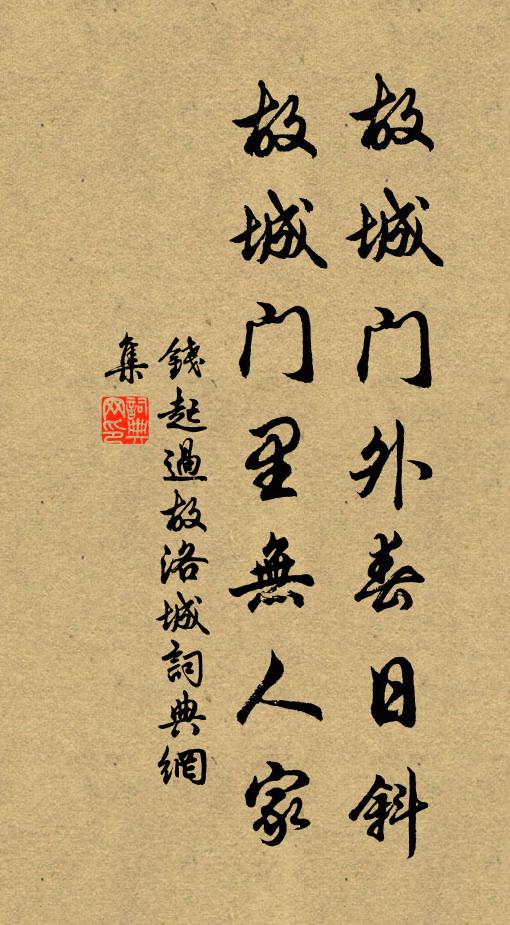 故城门外春日斜
故城门里無人家
錢起過故洛城詞典網
集
詞典网印